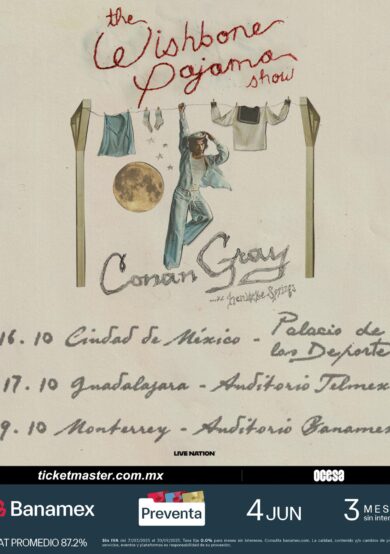 the
Wishbone
Pajama
show
Conan Gray
16.10 Ciudad de México - Palacio de
los Deporte
17.10 Guadalajara - Auditorio Telmex
9.10 Monterrey - Auditorio Baname
LIVE NATION
ticketmaster.com.mx ocesa
Banamex
Preventa
4 JUN
3 MES
sin inter
AT PROMEDIO 87.2%